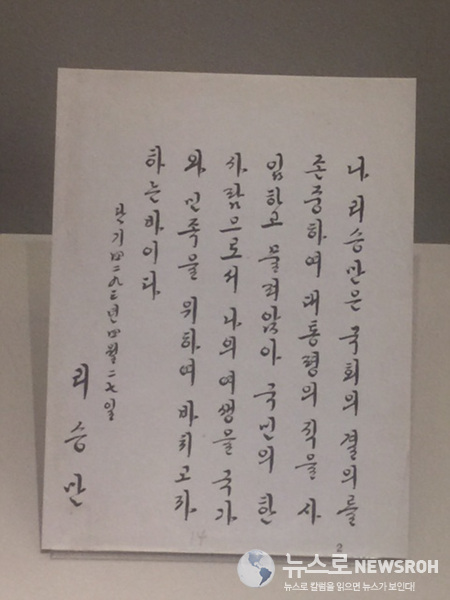 나 리승만은 국회의 결의를
존중하여 대통령의 직을 사
임하고 물러앉아 국민의 한
사람으로서 나의 여생을 국가
와 민족을 위하여 바치고자
하는 바이다
단기 四二九三년 四월 二七일
리승만
14
2
뉴스로 NEWSROH
뉴스로 칼럼을 읽으면 뉴스가 보인다!